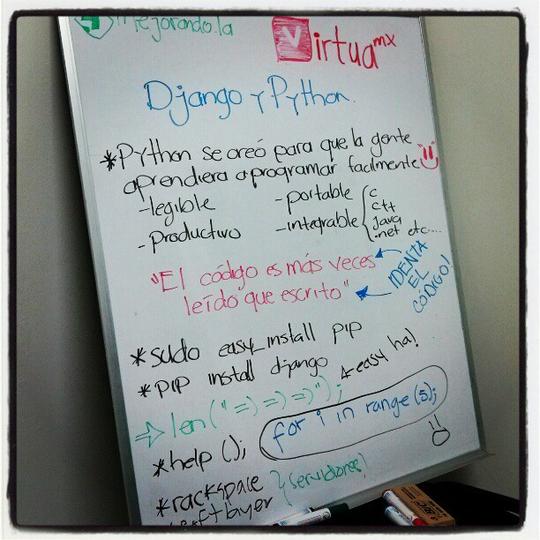 mejorando.la
Virtuamx
Django y Python.
*Python se creó para que la gente
aprendiera a programar facilmente
-legible
-productivo
-portable
-integrable { c
c++
java
.net etc...
"El código es más veces
leído que escrito"
IDENTA
EL
CÓDIGO!
*sudo easy_install pip
*pip install django
easy ha!
⇒ len("=) =) =)");
for i in range (5);
*help ();
*rackspace
softlayer
} (servidores)